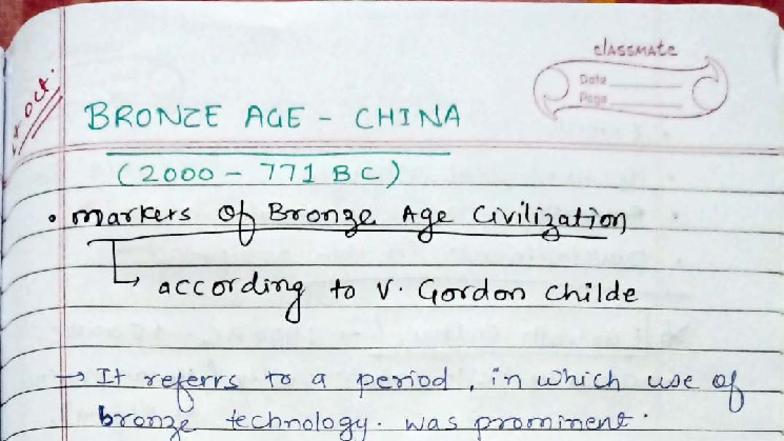 classmate
Date
Page
oct.
BRONZE AGE - CHINA
(2000 - 771 BC)
• markers of Bronze Age Civilization
↳ according to V. Gordon childe
→ It referrs to a period, in which use of
bronze technology. was prominent.